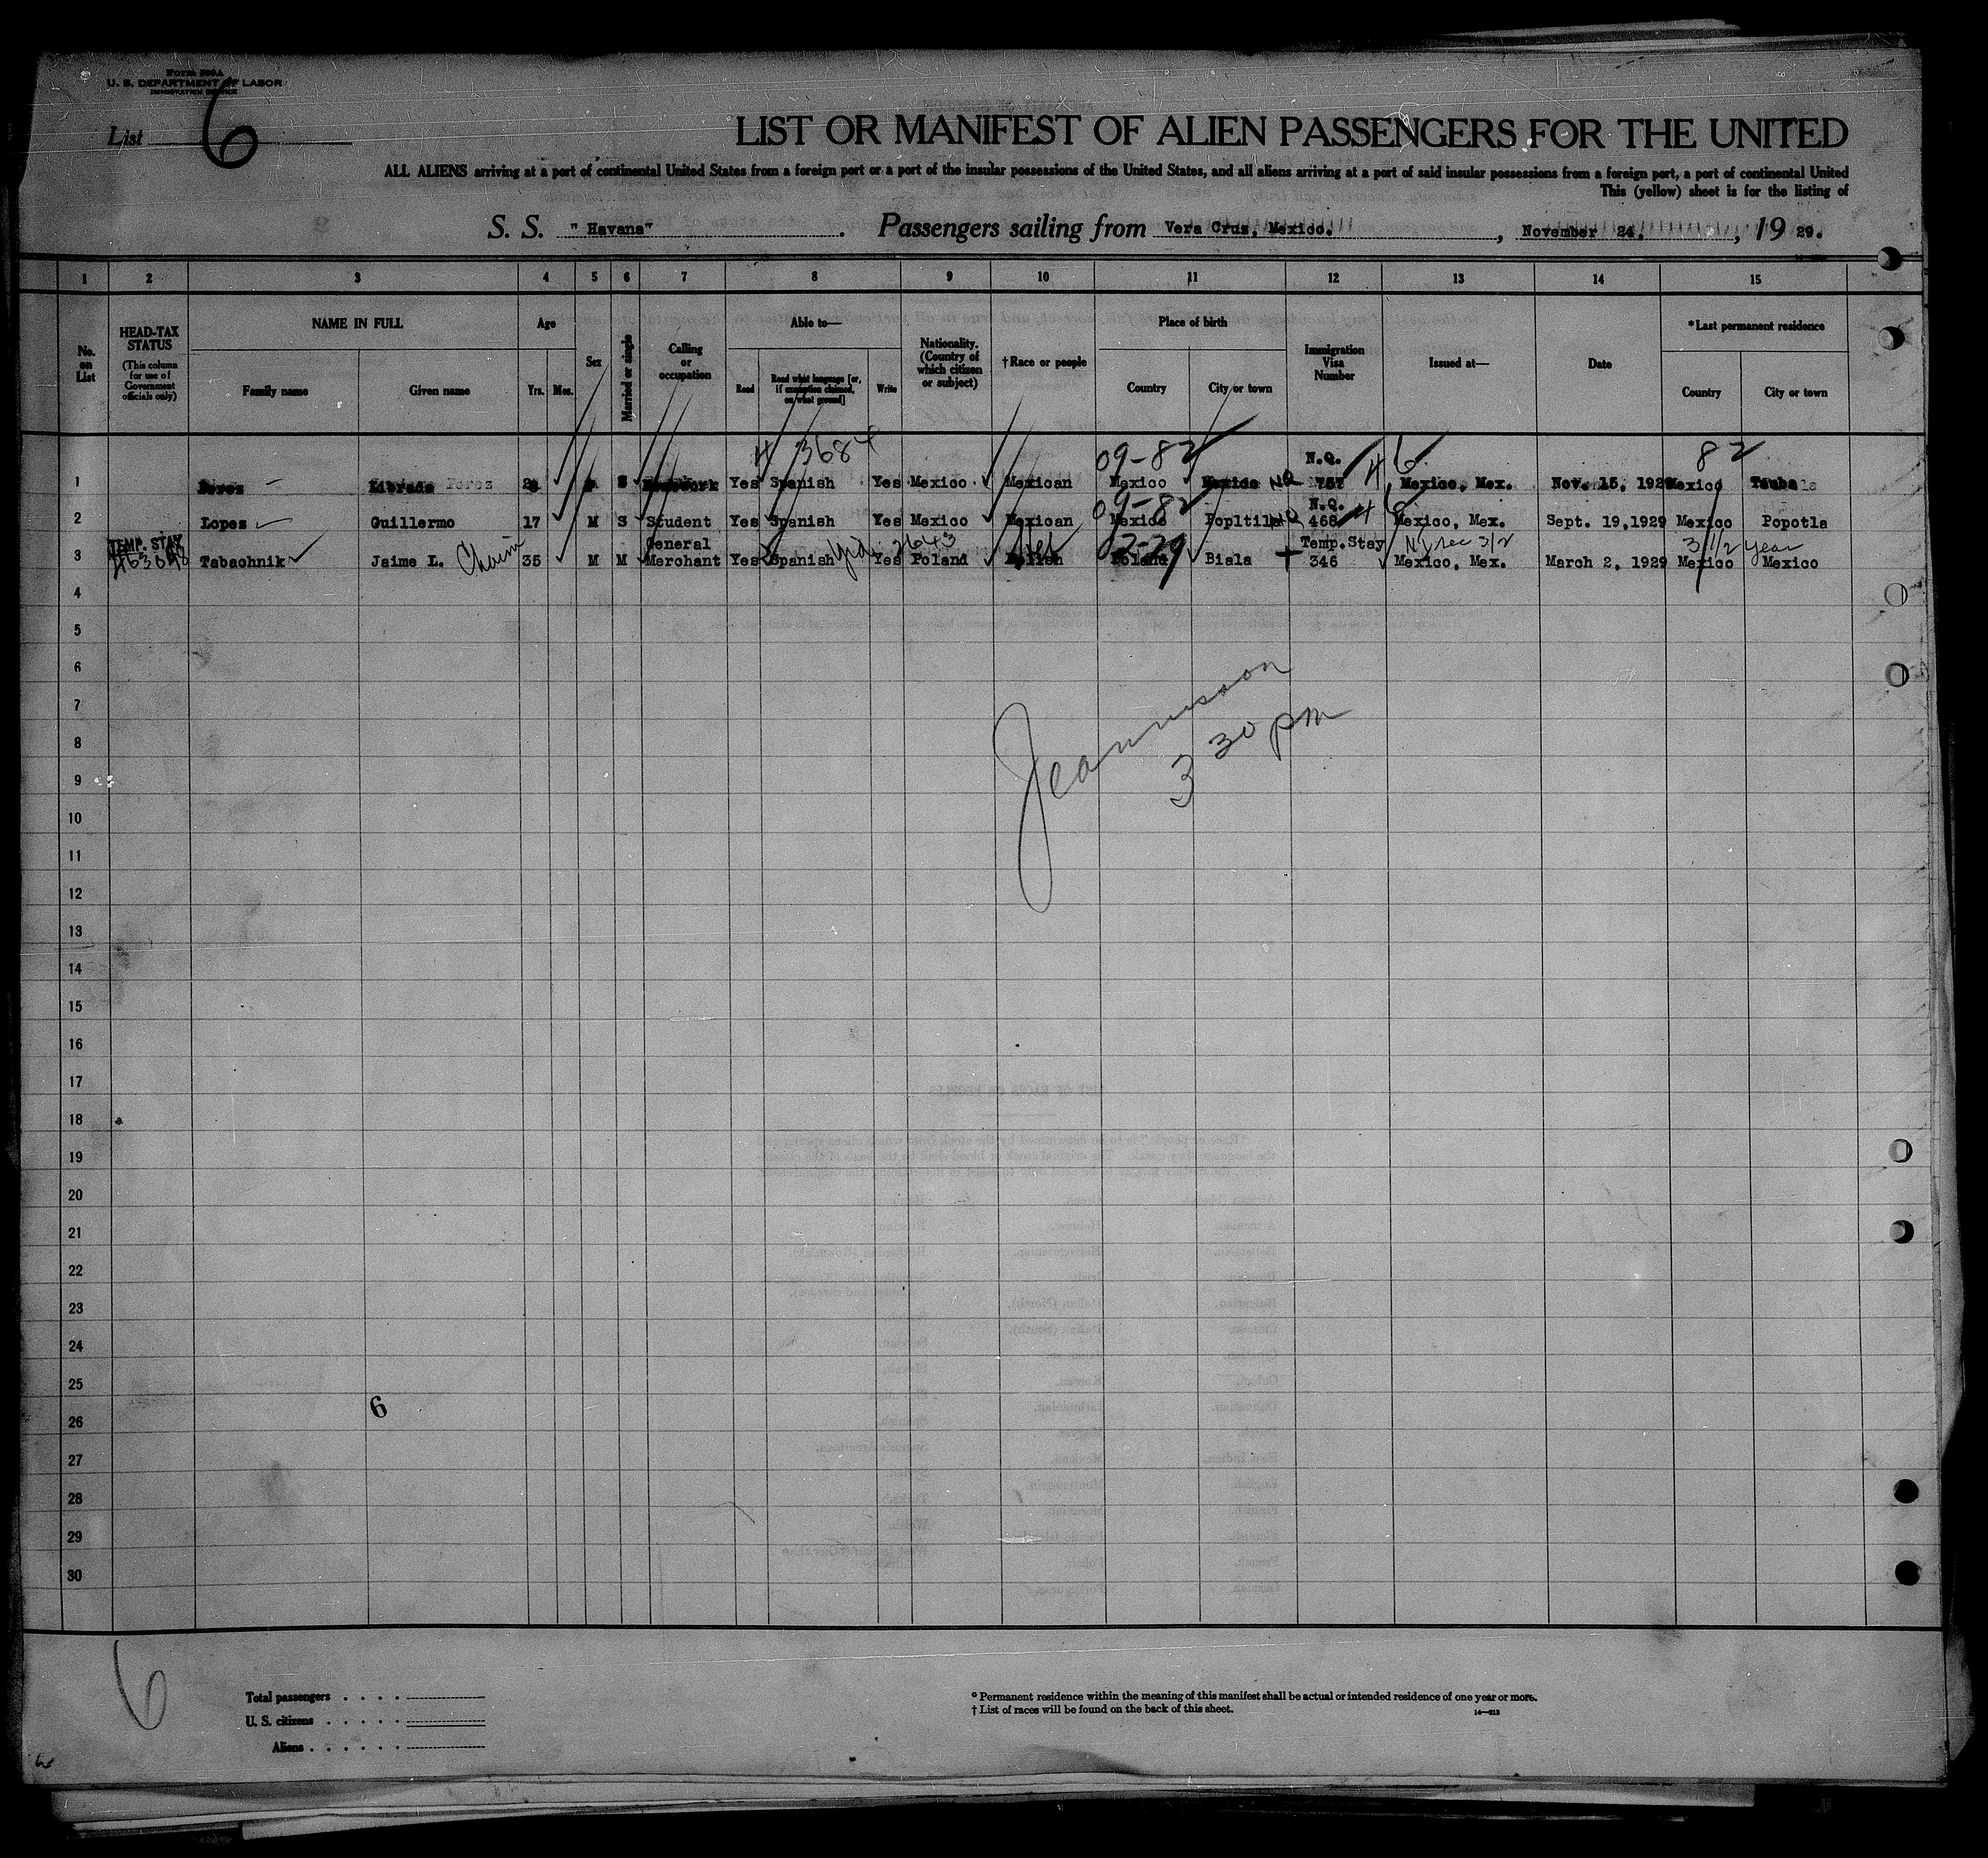 Form 500A
U. S. DEPARTMENT OF LABOR
IMMIGRATION SERVICE
List 6
LIST OR MANIFEST OF ALIEN PASSENGERS FOR THE UNITED
ALL ALIENS arriving at a port of continental United States from a foreign port or a port of the insular possessions of the United States, and all aliens arriving at a port of said insular possessions from a foreign port, a port of continental United
This (yellow) sheet is for the listing of
S. S. "Havana". Passengers sailing from Vera Cruz, Mexico. , November 24. , 19 29.
1 2 3 4 5 6 7 8 9 10 11 12 13 14 15
No. on List
HEAD-TAX STATUS (This column for use of Government officials only)
NAME IN FULL
Family name Given name
Age
Yrs. Mos.
Sex
Married or single
Calling or occupation
Able to—
Read Read what language [or, if exemption claimed, on what ground] Write
Nationality. (Country of which citizen or subject)
†Race or people
Place of birth
Country City or town
Immigration Visa Number
Issued at—
Date
*Last permanent residence
Country City or town
3684 09-82 N.Q. 82
1 Perez Librada Perez S Yes Spanish Yes Mexico Mexican Mexico Mexico NQ 757 Mexico, Mex. Nov. 15, 1929 Mexico
09-82 N.Q.
2 Lopes Guillermo 17 M S Student Yes Spanish Yes Mexico Mexican Mexico 468 Mexico, Mex. Sept. 19,1929 Mexico Popotla
TEMP. STAY General 2643 02-29 Temp.Stay 3 1/2 year
3 Tabachnik Jaime L. Chaim 35 M M Merchant Yes Spanish Yid Yes Poland Polish Poland Biala 346 Mexico, Mex. March 2, 1929 Mexico Mexico
4
5
6
7
8
9
10
11
12
13
14
15
16
17
18
19
20
21
22
23
24
25
26
27
28
29
30
3 30 pm
6
6
Total passengers
U. S. citizens
Aliens
* Permanent residence within the meaning of this manifest shall be actual or intended residence of one year or more.
† List of races will be found on the back of this sheet.
14—313